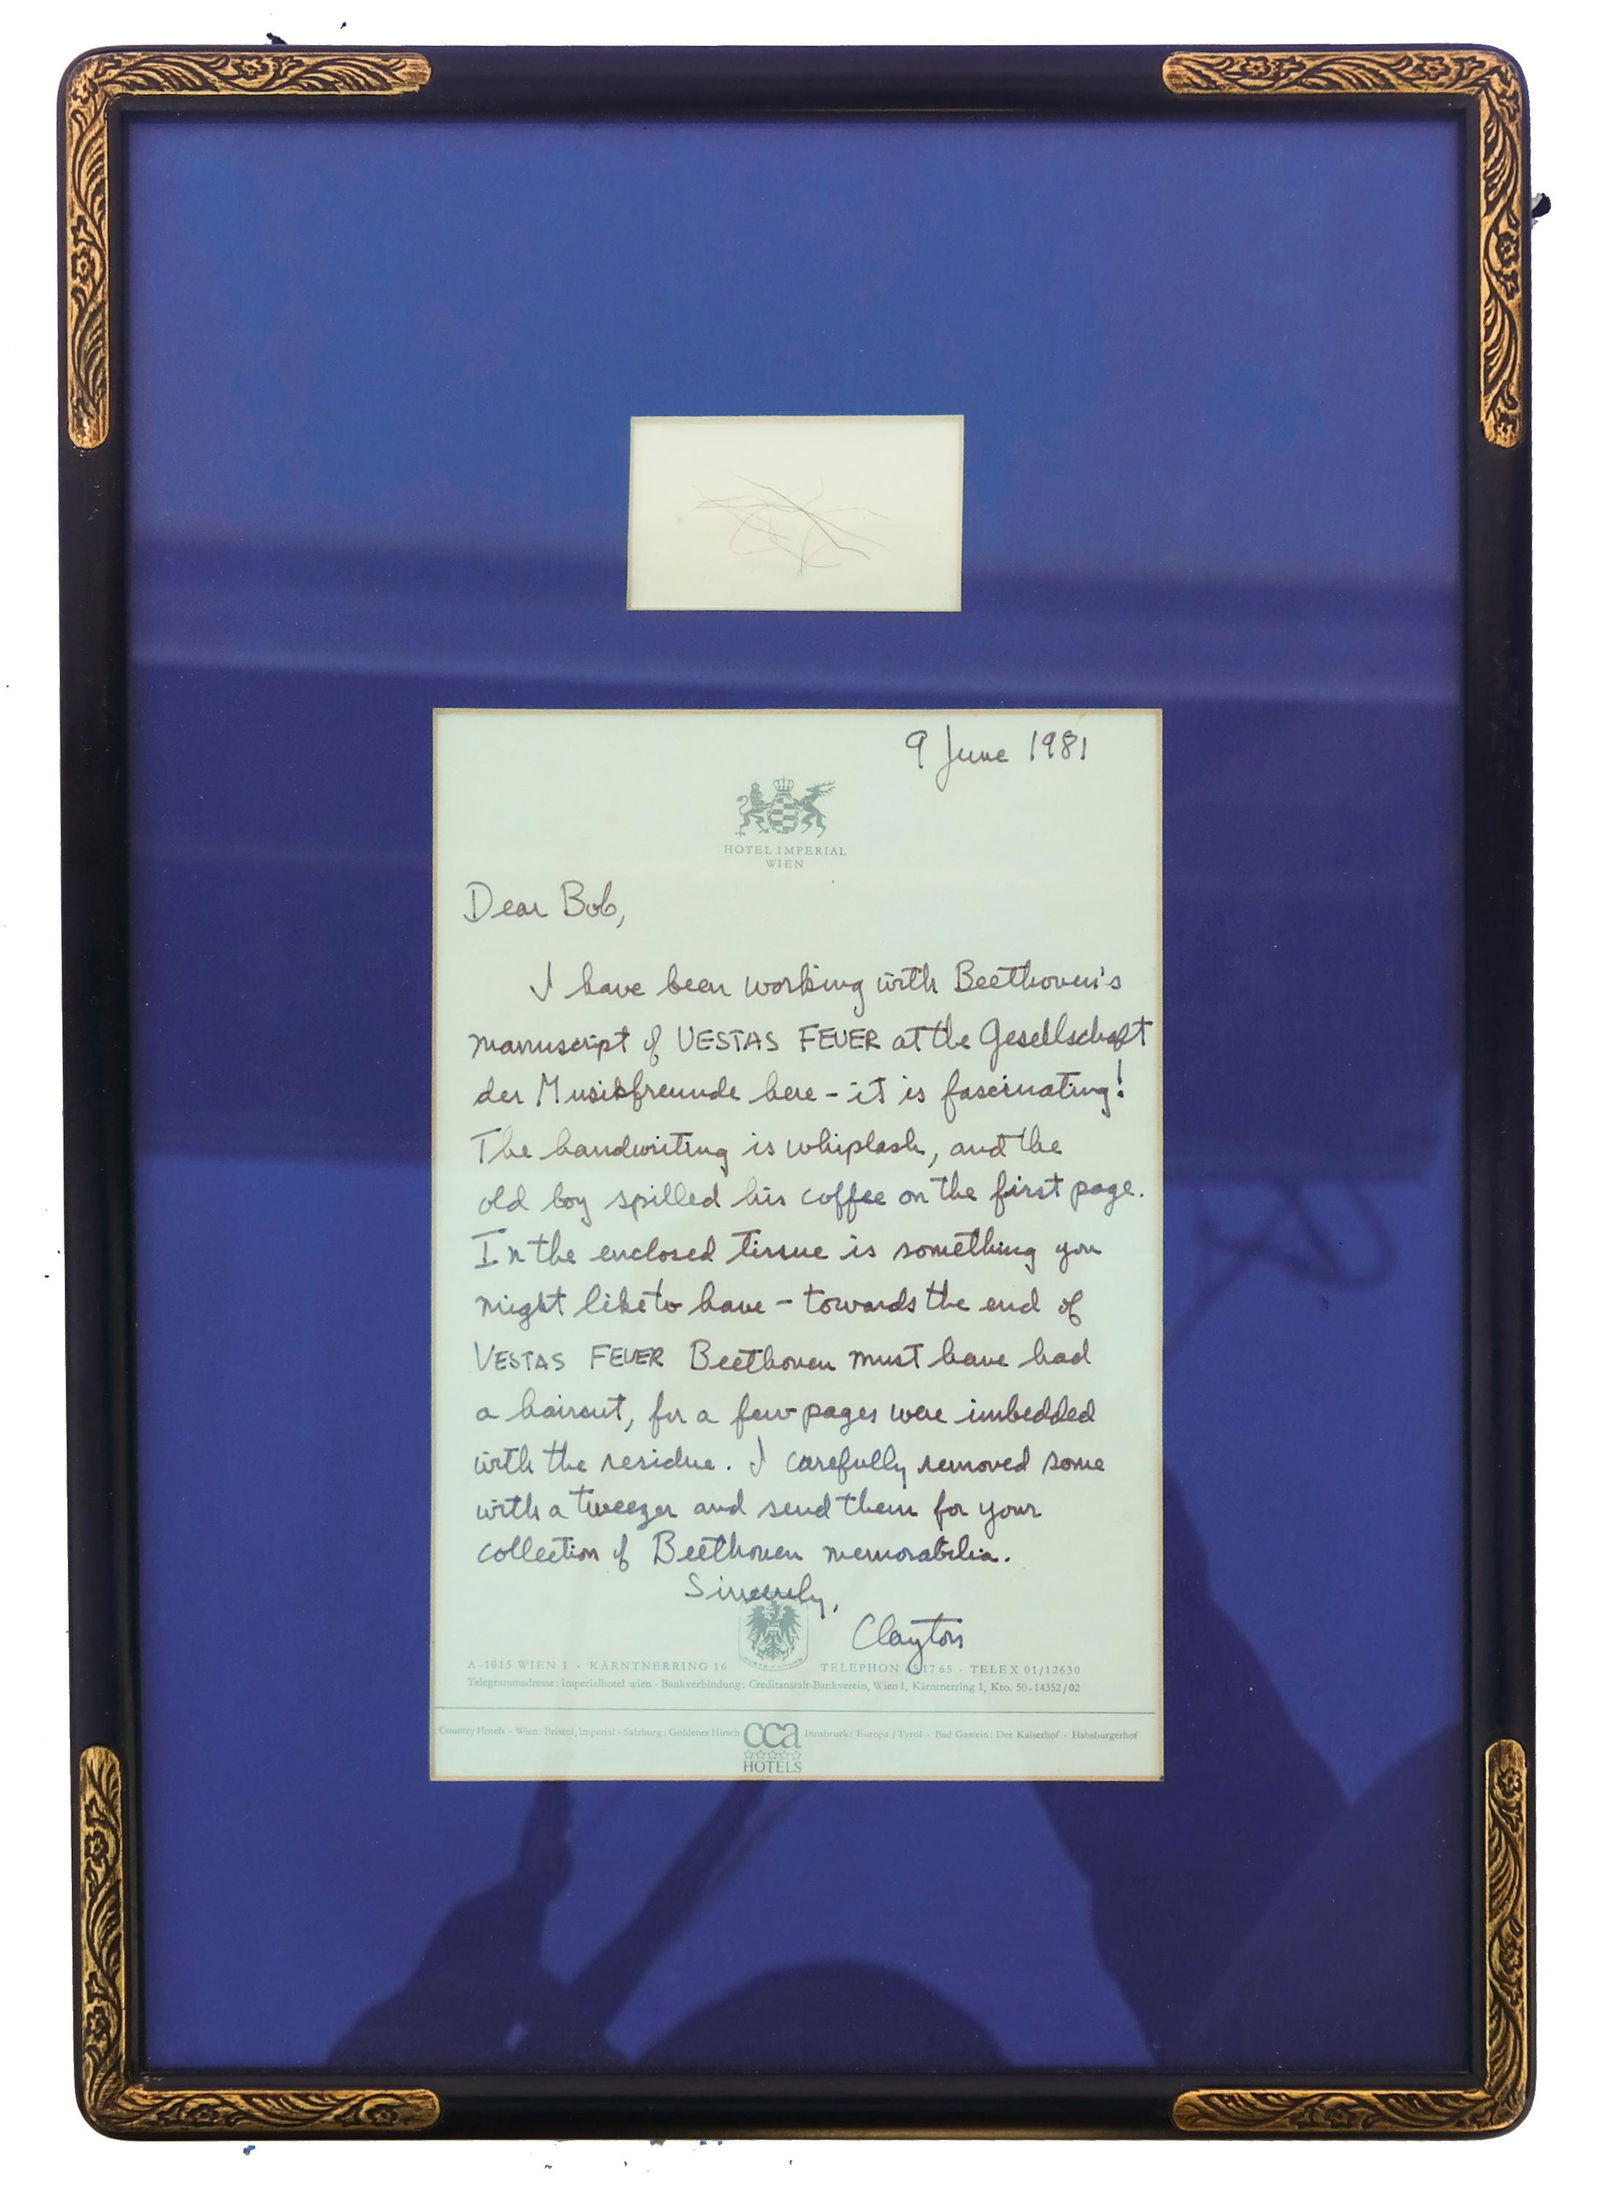 9 June 1981
HOTEL IMPERIAL
WIEN
Dear Bob,
I have been working with Beethoven's
manuscript of VESTAS FEUER at the Gesellschaft
der Musikfreunde here - it is fascinating!
The handwriting is whiplash, and the
old boy spilled his coffee on the first page.
In the enclosed tissue is something you
might like to have - towards the end of
VESTAS FEUER Beethoven must have had
a haircut, for a few pages were imbedded
with the residue. I carefully removed some
with a tweezer and send them for your
collection of Beethoven memorabilia.
Sincerely,
Clayton
A-1015 WIEN I · KÄRNTNERRING 16 TELEPHON 651765 · TELEX 01/12630
Telegrammadresse: Imperialhotel wien · Bankverbindung: Creditanstalt-Bankverein, Wien I, Kärntnerring 1, Kto. 50-14352/02
Country Hotels · Wien: Bristol, Imperial · Salzburg: Goldener Hirsch cca Innsbruck: Europa/Tyrol · Bad Gastein: Der Kaiserhof · Habsburgerhof
HOTELS